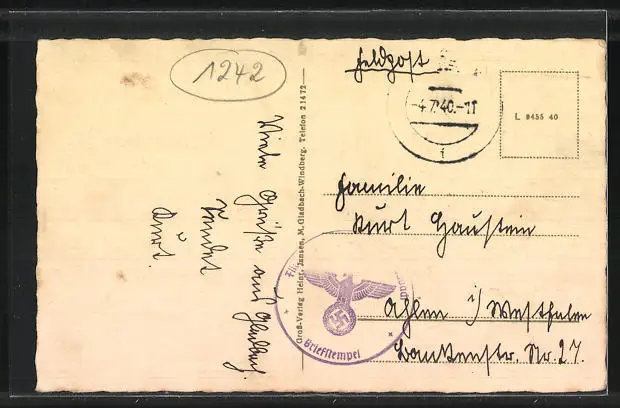 1242
Viele Grüße aus Gladbach.
sendet
Kurt.
Groß-Verlag Heinr. Jansen, M. Gladbach-Windberg. Telefon 21472
Feldpost
-4.7.40.-11
i
L 9455 40
Familie
Kurt Haustein
Ahlen i/ Westfalen
Nr. 27.
Briefstempel